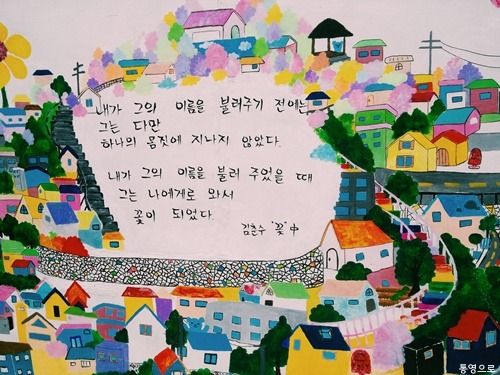 내가 그의 이름을 불러주기 전에는
그는 다만
하나의 몸짓에 지나지 않았다.
내가 그의 이름을 불러 주었을 때
그는 나에게로 와서
꽃이 되었다.
김춘수 "꽃" 中
통영으로